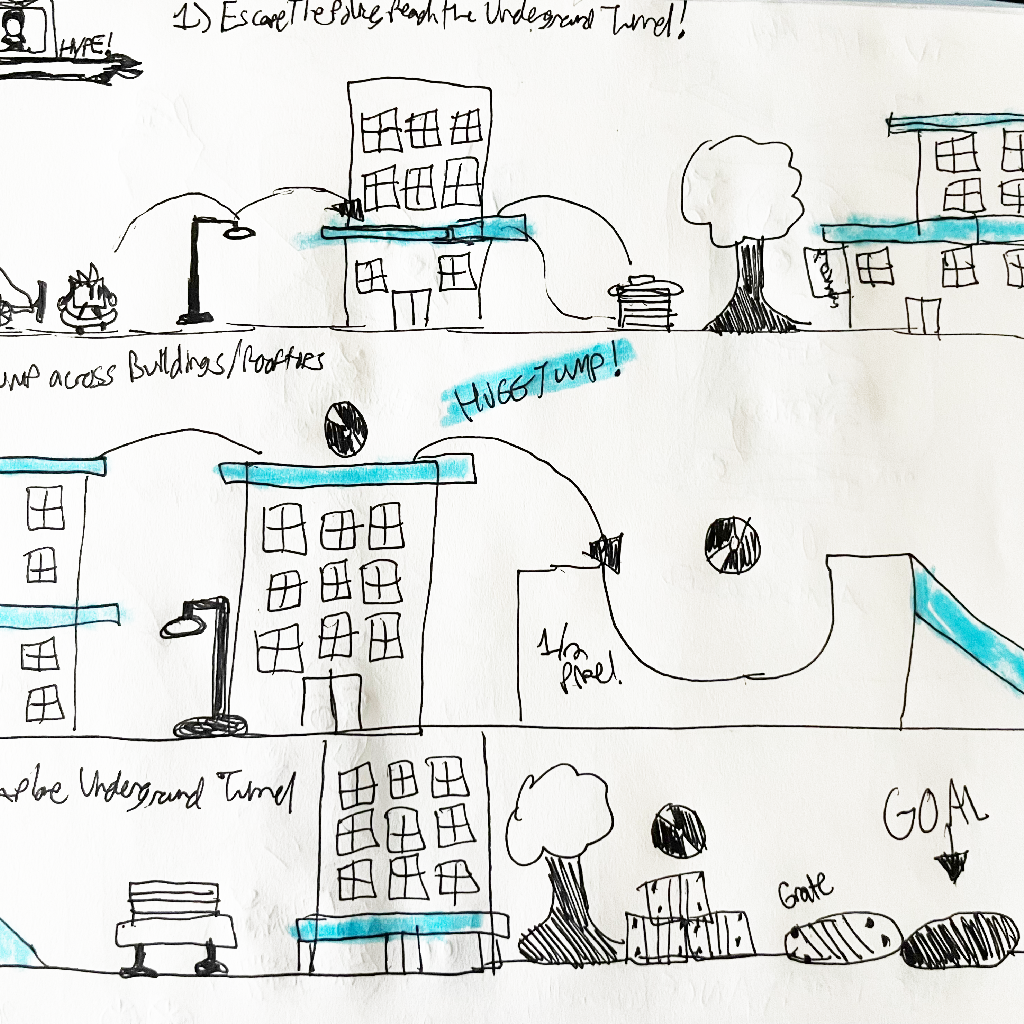 HYPE!
1) Escape The Police, Reach the Underground Tunnel!
ump across Buildings/Rooftops
HUGE JUMP!
1/2
Pixel.
Underground Tunnel
GOAL
Grate